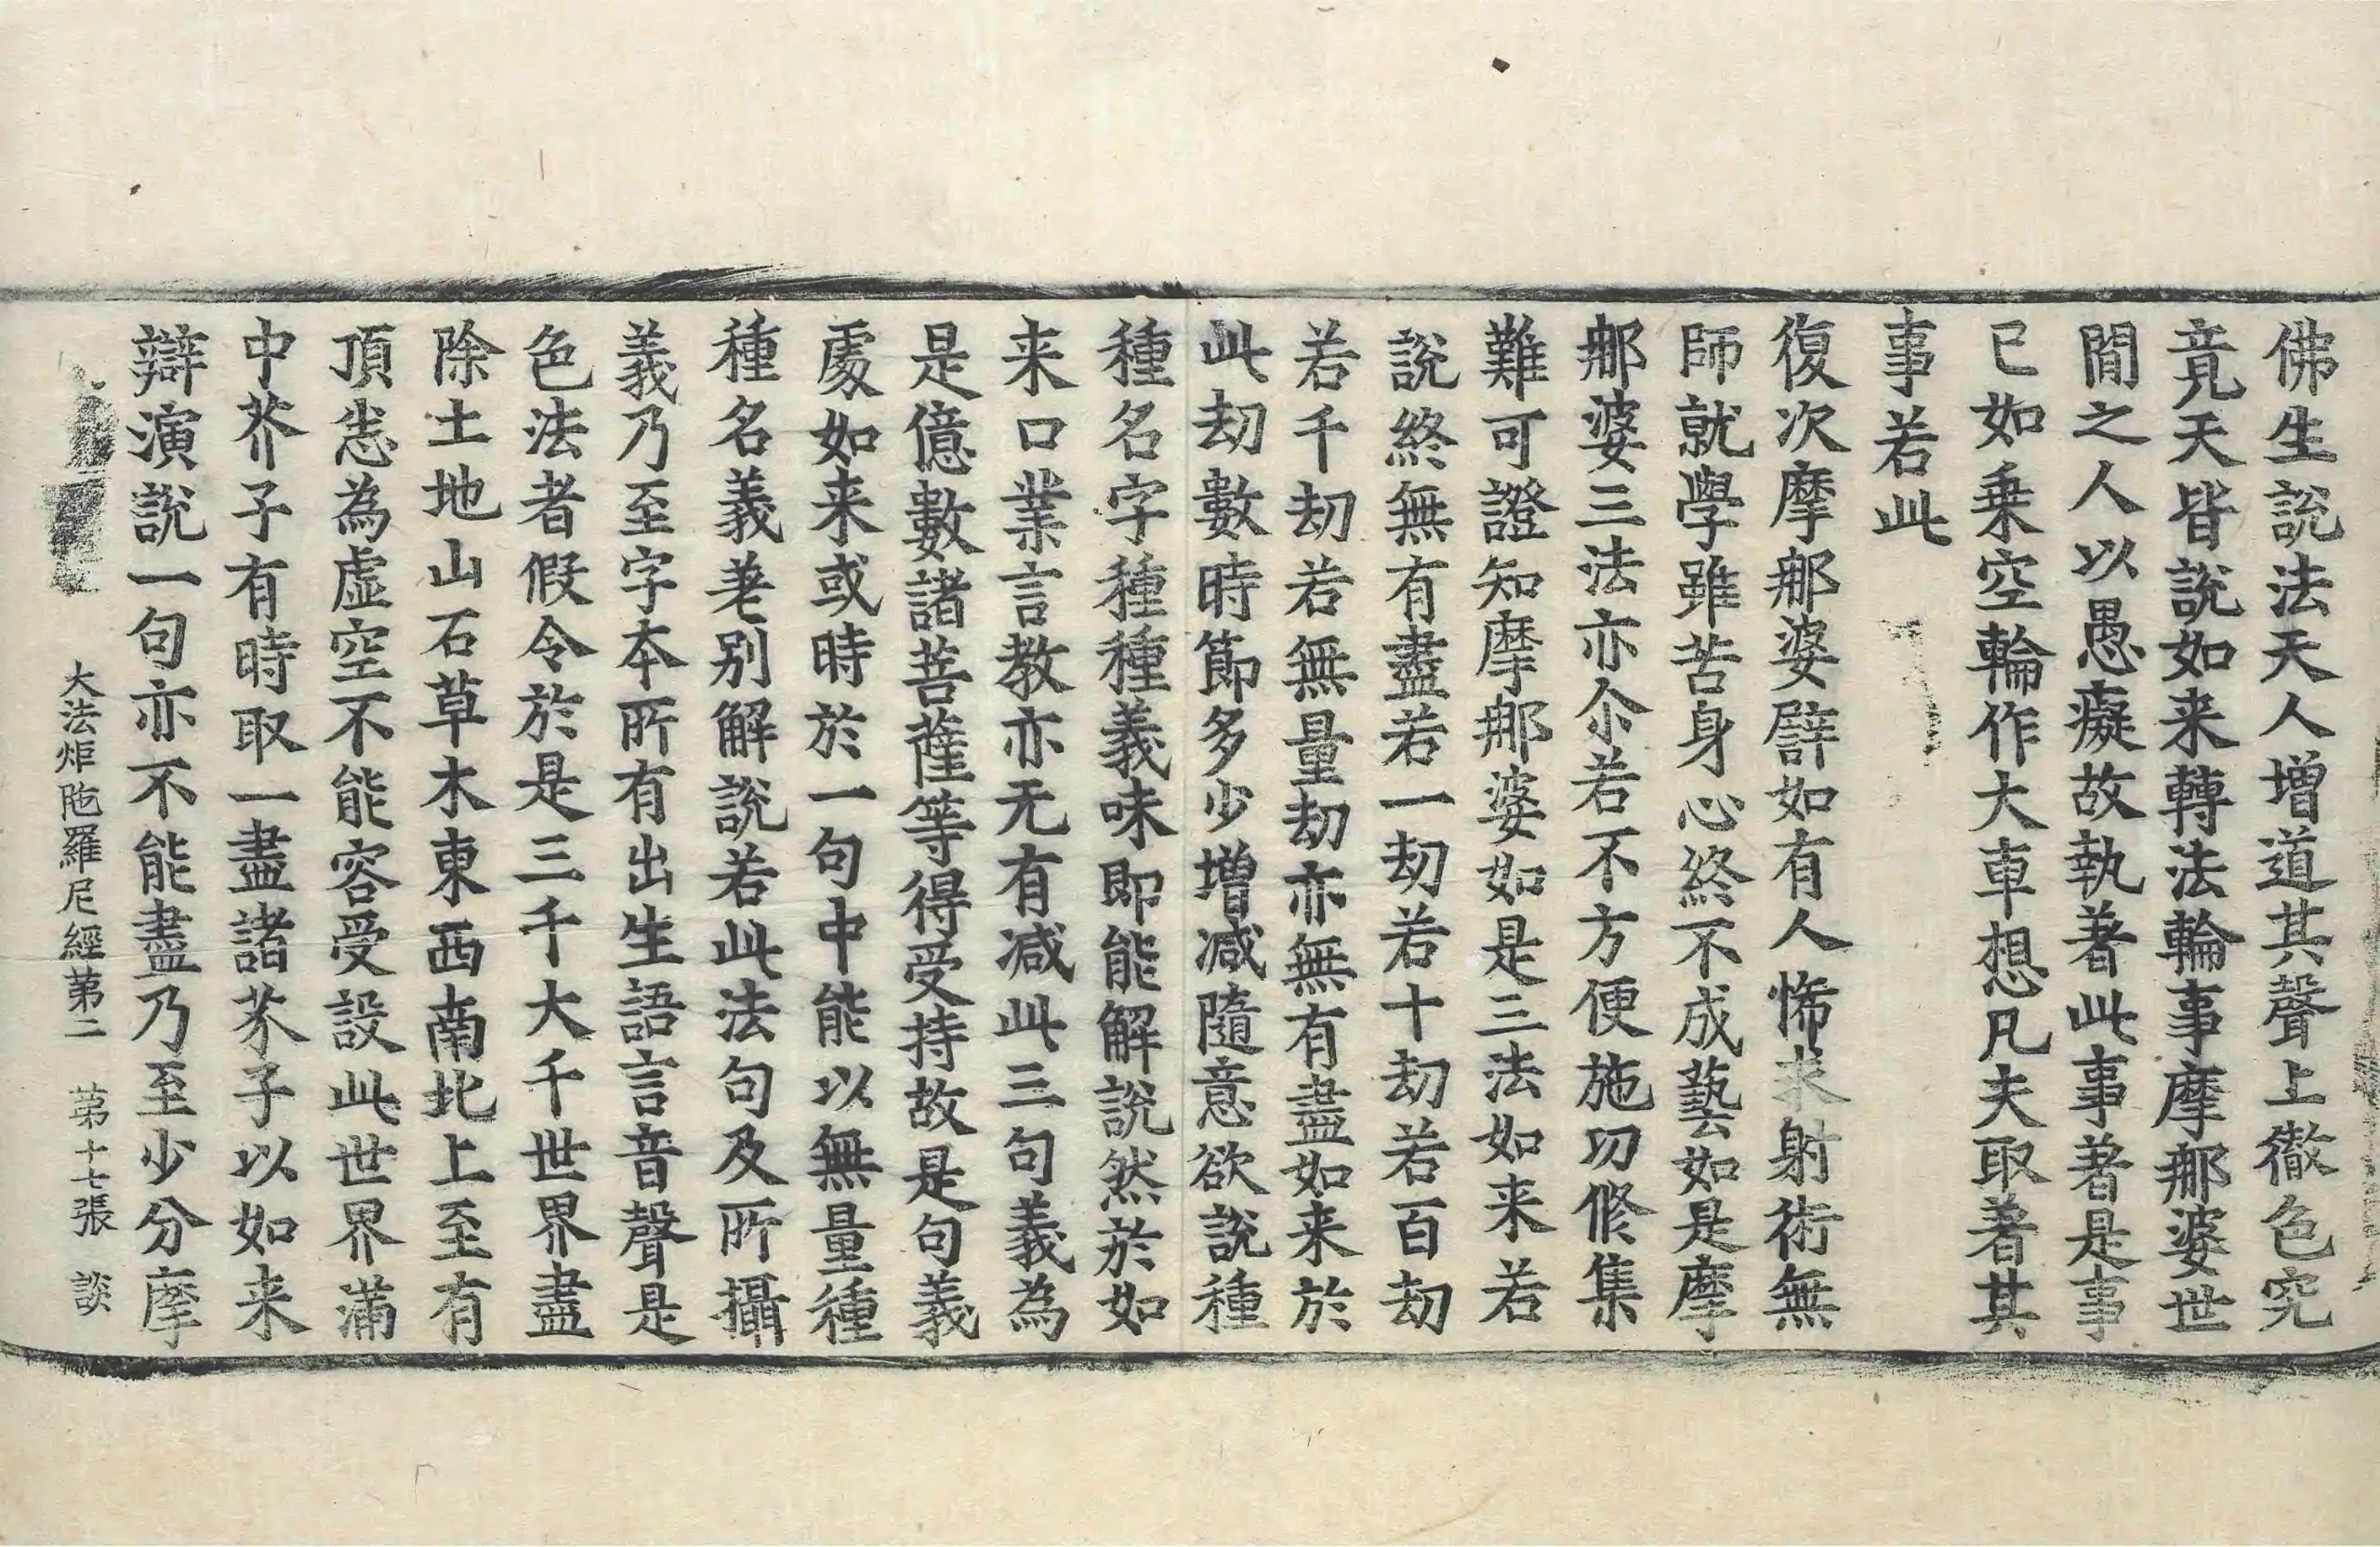 佛生說法天人增道其聲上徹色究
竟天皆說如来轉法輪事摩那婆世
間之人以愚癡故執著此事著是事
已如乗空輪作大車想凡夫取著其
事若此
復次摩那婆譬如有人悕求射術無
師就學雖苦身心終不成藝如是摩
那婆三法亦尒若不方便施功修集
難可證知摩那婆如是三法如来若
說終無有盡若一劫若十劫若百劫
若千劫若無量劫亦無有盡如来於
此劫數時節多少增減隨意欲說種
種名字種種義味即能解說然於如
来口業言教亦无有減此三句義為
是億數諸菩薩等得受持故是句義
處如来或時於一句中能以無量種
種名義差別解說若此法句及所攝
義乃至字本所有出生語言音聲是
色法者假令於是三千大千世界盡
除土地山石草木東西南北上至有
頂悉為虛空不能容受設此世界滿
中芥子有時取一盡諸芥子以如来
辯演說一句亦不能盡乃至少分摩
大法炬陁羅尼經第二　第十七張　談